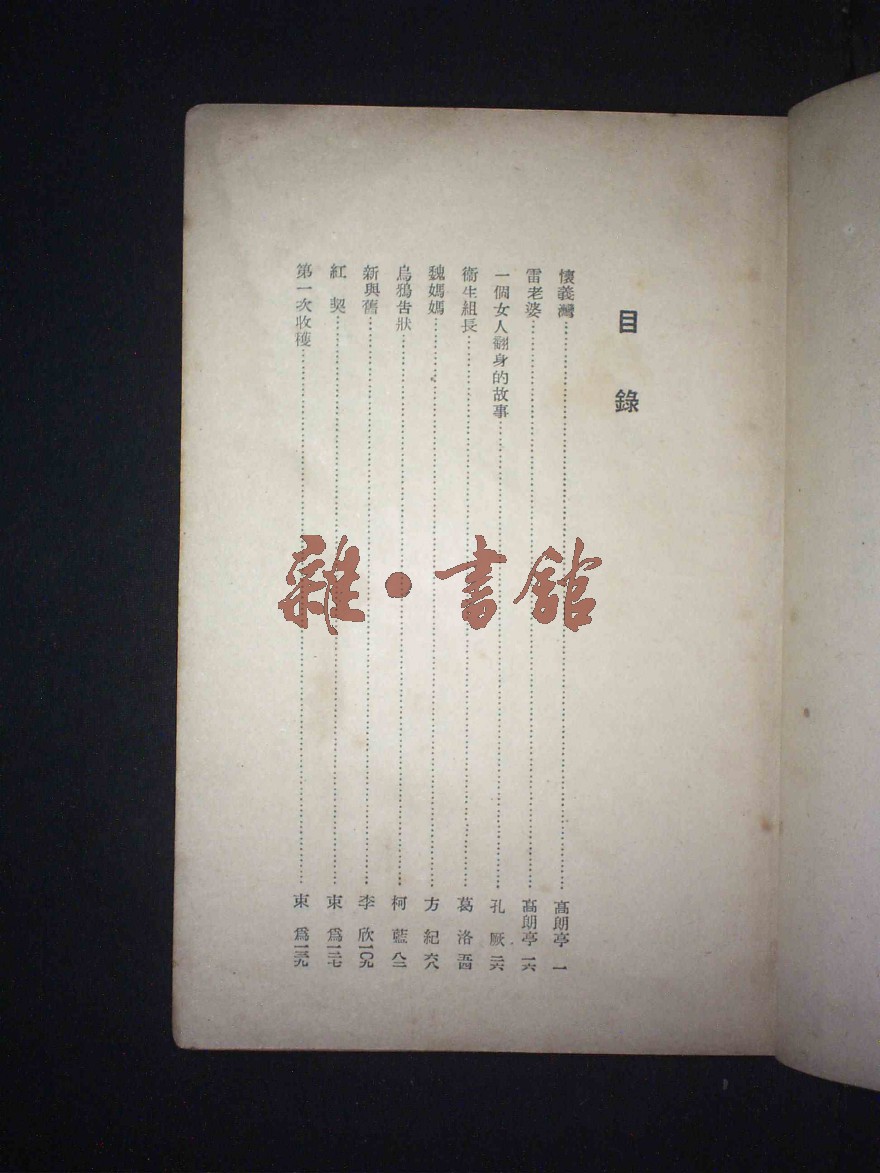 目錄
懷義灣……高朗亭 一
雷老婆……高朗亭 一六
一個女人翻身的故事……孔厥 二六
衞生組長……葛洛 五四
魏媽媽……方紀 六八
烏鴉告狀……柯藍 八二
新與舊……李欣 一〇九
紅契……束爲 一二七
第一次收穫……束爲 一三九
雜·書館